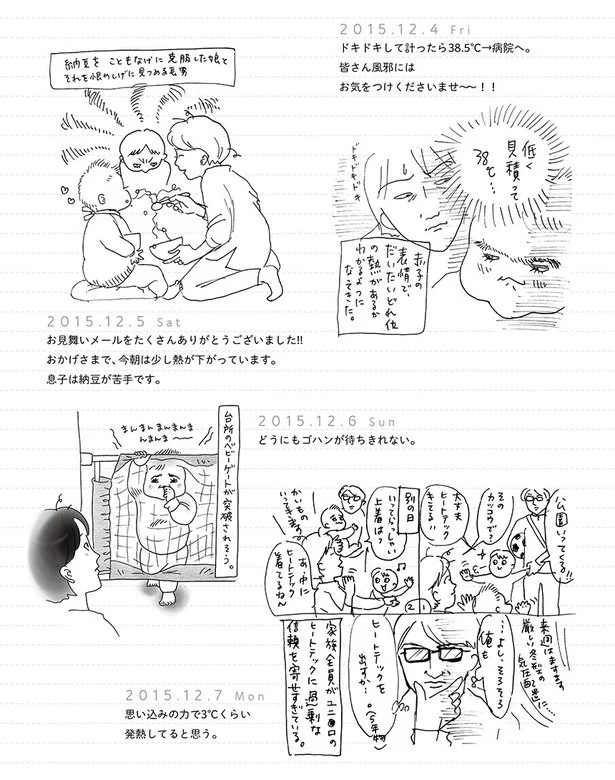 2015.12.4 Fri
ドキドキして計ったら38.5℃→病院へ。
皆さん風邪には
お気をつけくださいませ〜〜！！
低く
見積って
38℃…
ドキドキドキドキ
赤子の
表情で、
だいたいどれ位
の熱があるか
わかるように
なってきた。
納豆を こともなげに 克服した娘と
それを恨めしげに見つめる長男
2015.12.5 Sat
お見舞いメールをたくさんありがとうございました!!
おかげさまで、今朝は少し熱が下がっています。
息子は納豆が苦手です。
台所のベビーゲートが突破されそう。
まんまんまんまんま
んまんま〜〜
2015.12.6 Sun
どうにもゴハンが待ちきれない。
公園いってくる!!
その
カッコウで?
大丈夫
ヒートテック
きてる!!
①
別の日
かいもの
いってきます。
いってらっしゃい
上着は?
あ、中に
ヒートテック
着てるね〜
②
来週はますます
厳しい冬型の
気圧配置に…
…よし、そろそろ
俺も
ヒートテックを
出すか…
(5年物)
家族全員がユニ●ロの
ヒートテックに過剰な
信頼を寄せすぎている。
2015.12.7 Mon
思い込みの力で3℃くらい
発熱してると思う。